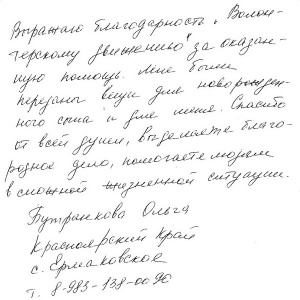 Выражаю благодарность "Волон-
терскому движению" за оказан-
ную помощь. Мне были
переданы вещи для новорожден-
ного сына и для меня. Спасибо
от всей души, вы делаете благо-
родное дело, помогаете людям
в сложной жизненной ситуации.
Ольга
Красноярский край
с. Ермаковское
т. 8-983-138-00-90